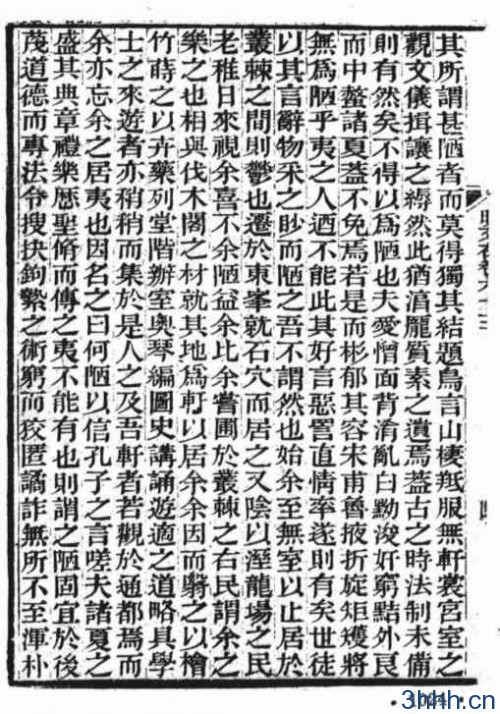 其所謂甚陋者而莫得獨其結題鳥言山棲羝服無軒裳宮室之
觀文儀揖讓之縟然此猶淳龐質素之遺焉蓋古之時法制未備
則有然矣不得以為陋也夫愛憎面背淆亂白黝浚奸窮黠外良
而中螫諸夏蓋不免焉若是而彬郁其容宋甫魯掖折旋矩矱將
無為陋乎夷之人迺不能此其好言惡詈直情率遂則有矣世徒
以其言辭物采之眇而陋之吾不謂然也始余至無室以止居於
叢棘之間則鬱也遷於東峯就石穴而居之又陰以溼龍場之民
老稚日來視余喜不余陋益余比余嘗圃於叢棘之右民謂余之
樂之也相與伐木閣之材就其地為軒以居余余因而翳之以檜
竹蒔之以卉藥列堂階辦室奧琴編圖史講誦遊適之道略具學
士之來遊者亦稍稍而集於是人之及吾軒者若觀於通都焉而
余亦忘余之居夷也因名之曰何陋以信孔子之言嗟夫諸夏之
盛其典章禮樂歷聖脩而傳之夷不能有也則謂之陋固宜於後
茂道德而專法令搜抉鉤縶之術窮而狡匿譎詐無所不至渾朴
3hhh.cn